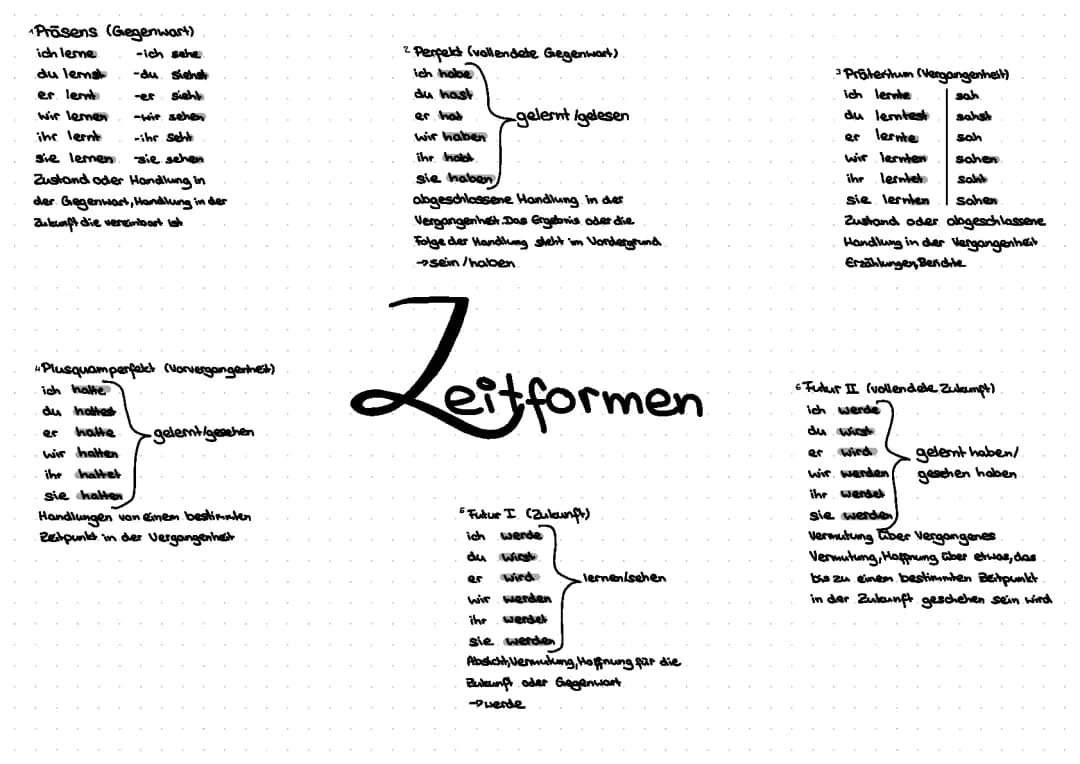 1 Präsens (Gegenwart)
ich lerne -ich sehe
du lernst -du siehst
er lernt -er sieht
wir lernen -wir sehen
ihr lernt -ihr seht
sie lernen -sie sehen
Zustand oder Handlung in
der Gegenwart, Handlung in der
Zukunft die vereinbart ist
2 Perfekt (vollendete Gegenwart)
ich habe
du hast
er hat
wir haben
ihr habt
sie haben
gelernt/gelesen
abgeschlossene Handlung in der
Vergangenheit. Das Ergebnis oder die
Folge der Handlung steht im Vordergrund
→sein/haben
3 Präteritum (Vergangenheit)
ich lernte sah
du lerntest sahst
er lernte sah
wir lernten sahen
ihr lerntet saht
sie lernten sahen
Zustand oder abgeschlossene
Handlung in der Vergangenheit
Erzählungen, Berichte
Zeitformen
4 Plusquamperfekt (Vorvergangenheit)
ich hatte
du hattest
er hatte
wir hatten
ihr hattet
sie hatten
gelernt/gesehen
Handlungen von einem bestimmten
Zeitpunkt in der Vergangenheit
5 Futur I (Zukunft)
ich werde
du wirst
er wird
wir werden
ihr werdet
sie werden
lernen/sehen
Absicht, Vermutung, Hoffnung für die
Zukunft oder Gegenwart
→werde
6 Futur II (vollendete Zukunft)
ich werde
du wirst
er wird
wir werden
ihr werdet
sie werden
gelernt haben/
gesehen haben
Vermutung über Vergangenes
Vermutung, Hoffnung über etwas, das
bis zu einem bestimmten Zeitpunkt
in der Zukunft geschehen sein wird